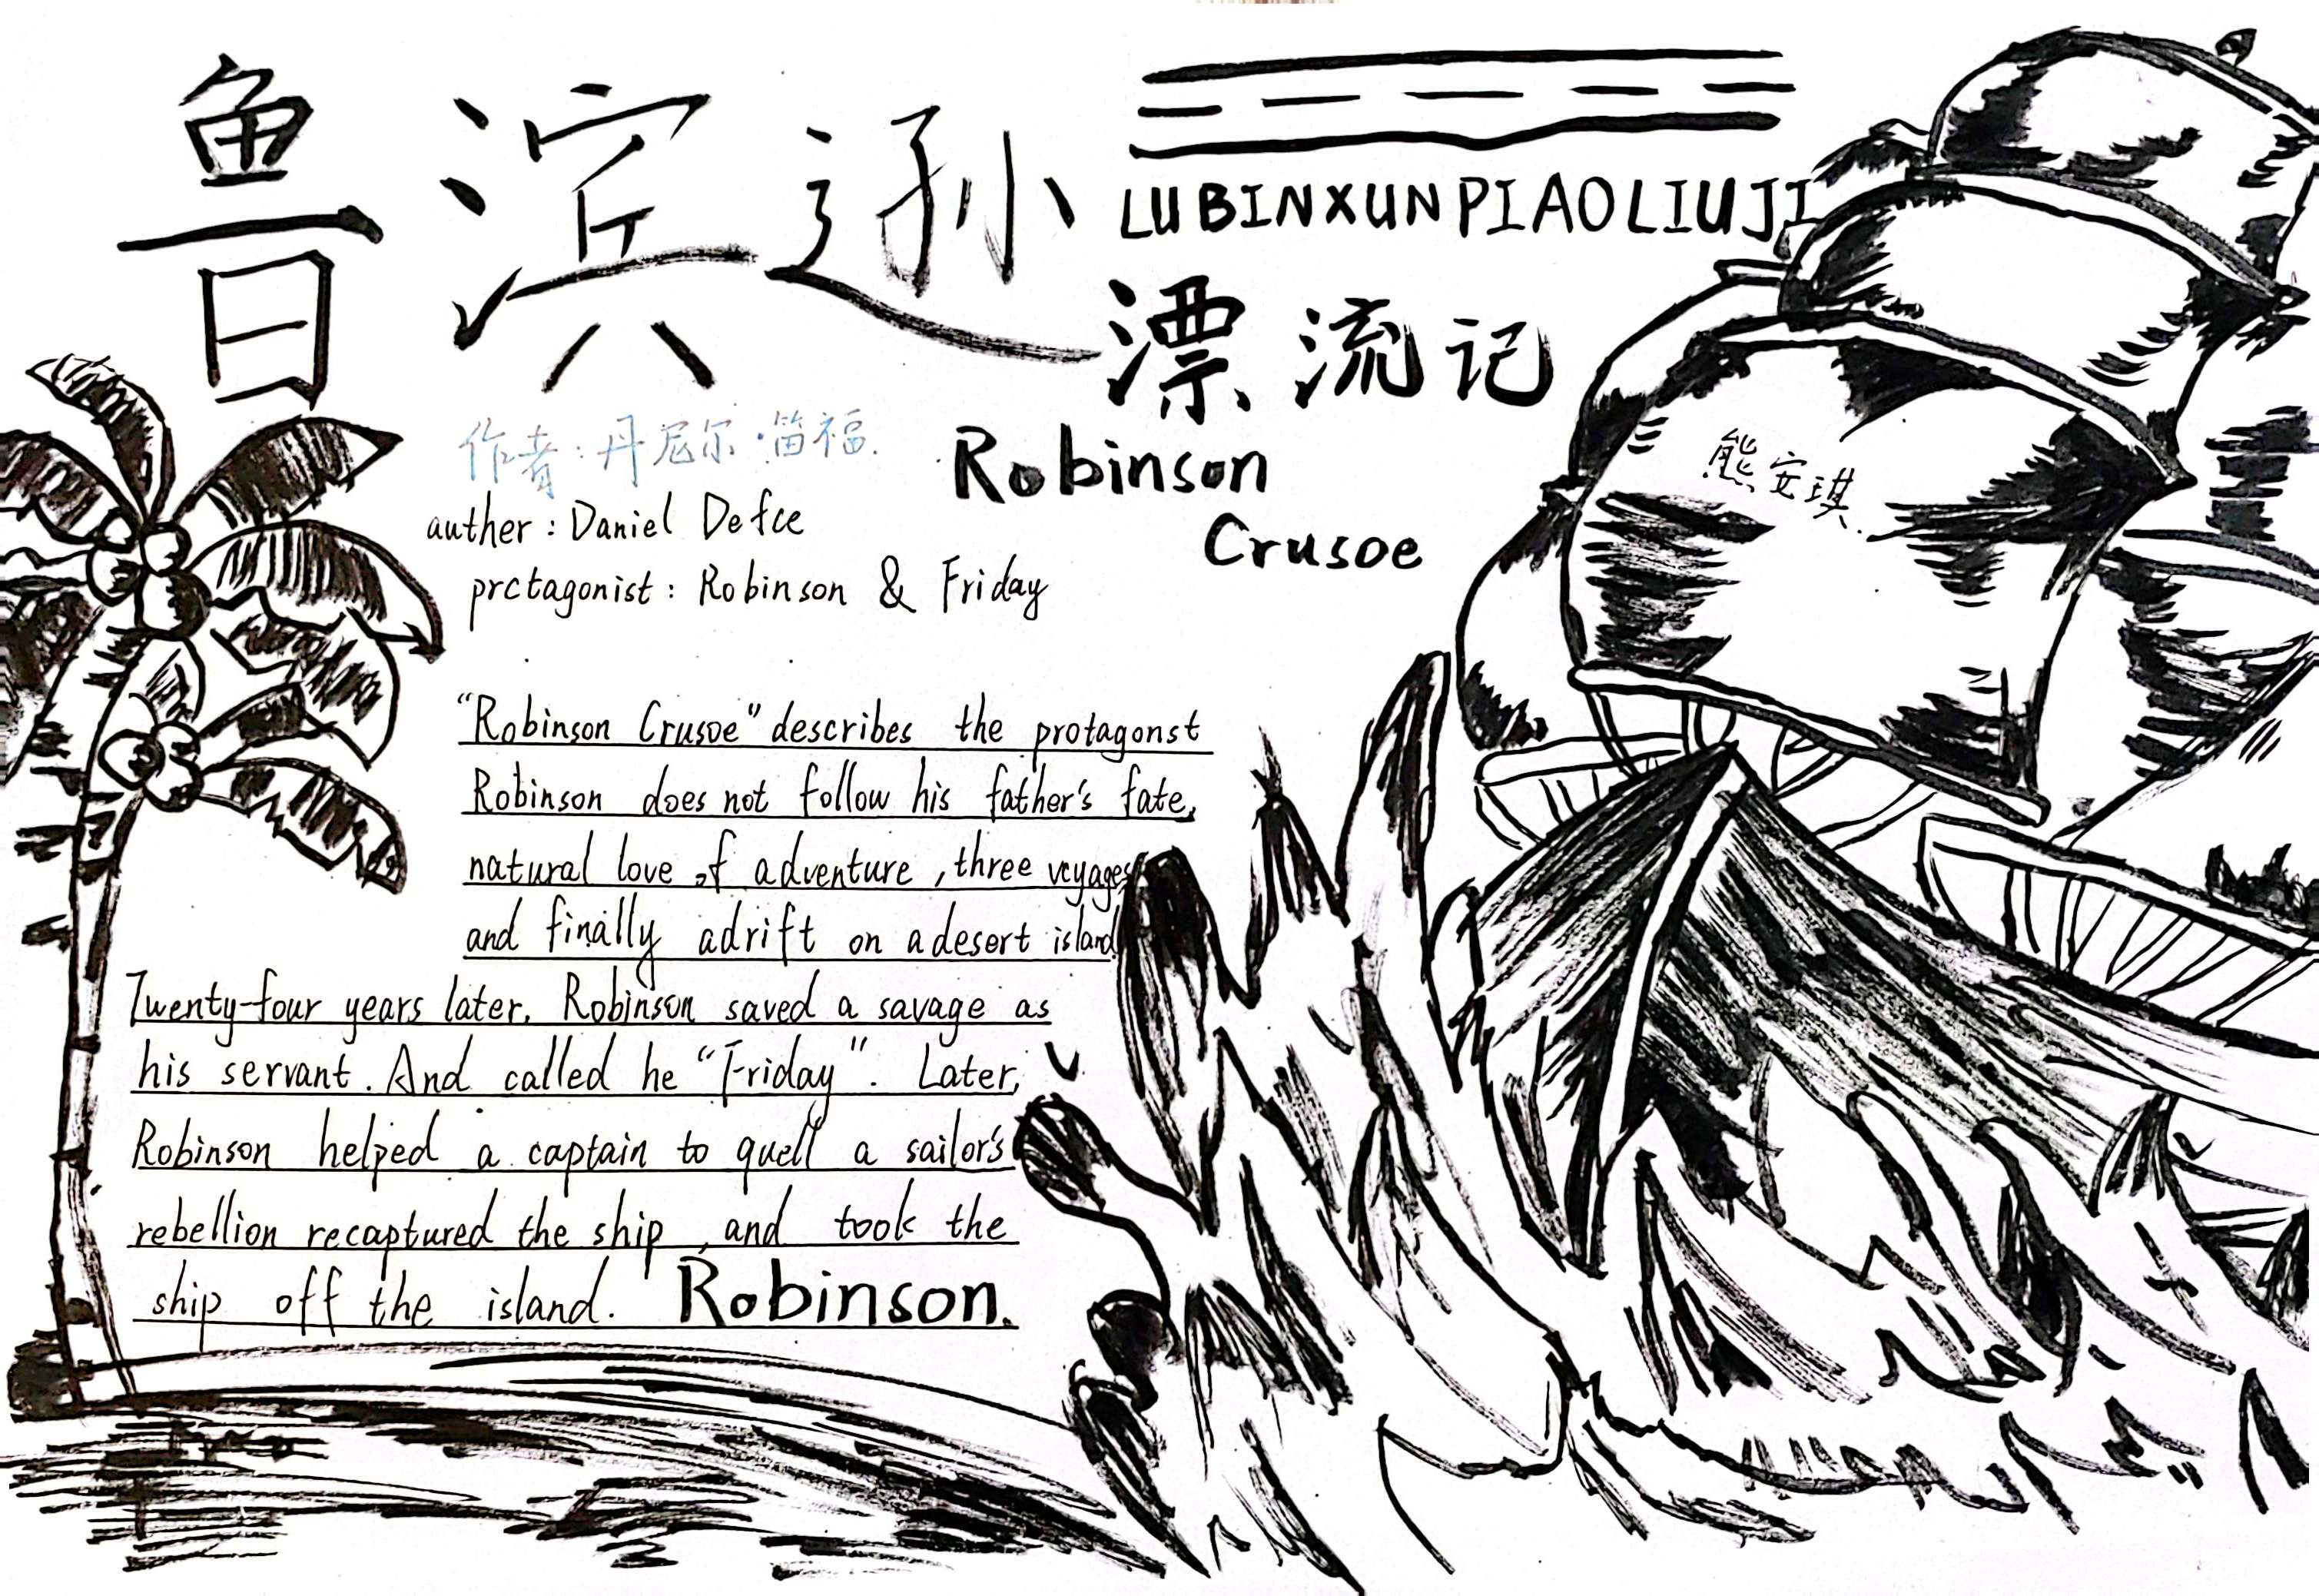 鲁滨逊
LUBINXUNPIAOLIUJI
漂流记
Robinson
Crusoe
作者:丹尼尔·笛福.
auther: Daniel Defce
prctagonist: Robinson & Friday
熊安琪.
"Robinson Crusoe" describes the protagonst
Robinson does not follow his father's fate,
natural love of adventure, three vcyages
and finally adrift on a desert island
Twenty-four years later, Robinson saved a savage as
his servant. And called he "Friday". Later,
Robinson helped a captain to quell a sailor's
rebellion recaptured the ship, and took the
ship off the island. Robinson.